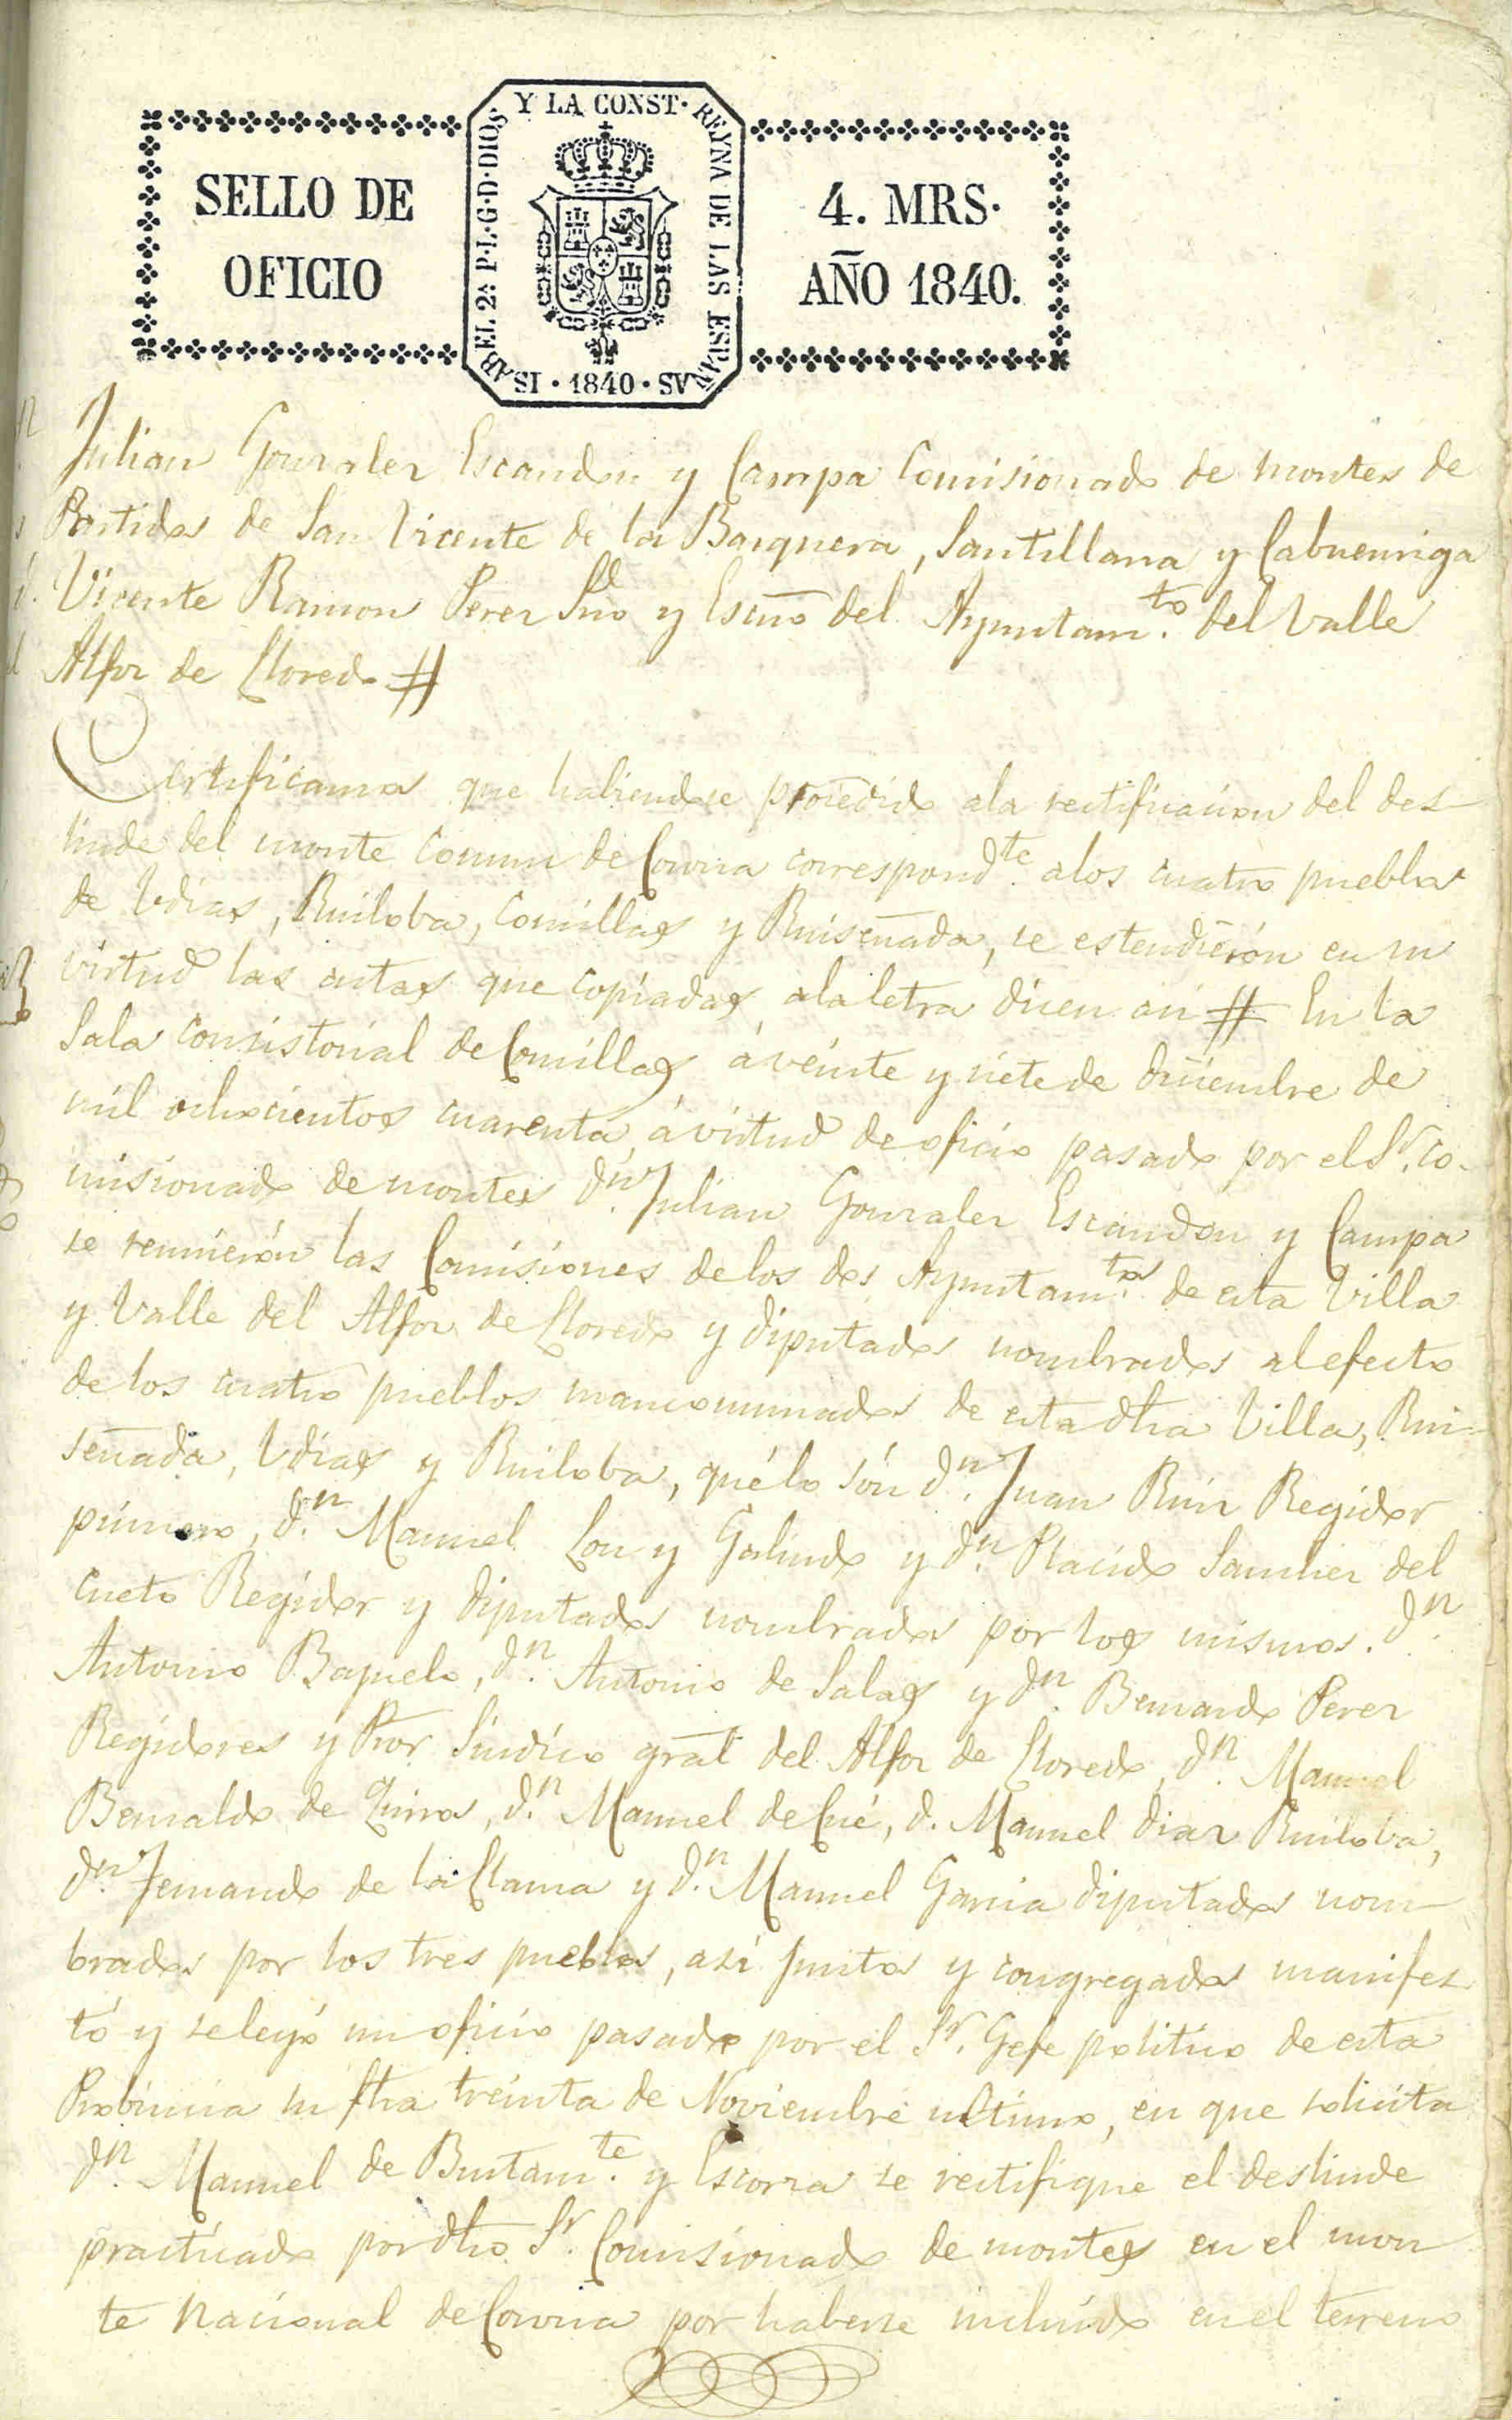 SELLO DE
OFICIO
ISABEL 2ª P·L·G·D·DIOS· Y LA CONST· REYNA DE LAS ESPAÑAS · 1840 ·
4. MRS·
AÑO 1840.
Julian Gonzalez Escandon y Campa Comisionado de montes de
Partidos de San Vicente de la Barquera, Santillana y Cabuerniga
Vicente Ramon Perez Srio y Escño del Ayuntamto. del Valle
Alfoz de Lloredo #
Certificamos que habiendose procedido ala rectificacion del des-
linde del monte Comun de Corona correspondte. alos cuatro pueblos
de Udias, Ruiloba, Comillas y Ruiseñada, se estendiéron en su
virtud las actas que copiadas ala letra dicen asi # En la
Sala Consistorial de Comillas á véinte y siete de diciembre de
mil ochocientos cuarenta, á virtud de oficio pasado por el Sr. Co-
misionado de montes dn. Julian Gonzalez Escandón y Campa
se reuniéron las Comisiones delos dos Ayuntamtos. de esta Villa
y Valle del Alfoz de Lloredo y diputados nombrados al efecto
de los cuatro pueblos mancomunados de esta dha Villa, Rui-
señada, Udias y Ruiloba, qué lo són dn. Juan Ruiz Regidor
primero, dn. Manuel Cou y Galindo y dn. Placido Sanchez del
Cueto Regidor y diputados nombrados por los mismos. dn.
Antonio Bajuelo, dn. Antonio de Salas y dn. Bernardo Perez
Regidores y Pror Sindico gral del Alfoz de Lloredo, dn. Manuel
Bernaldo de Quiros, dn. Manuel de Cué, d. Manuel Diaz Ruiloba,
dn. Fernando de la Llama y dn. Manuel Garcia diputados nom-
brados por los tres pueblos, así juntos y congregados manifes-
tó y se leyó un oficio pasado por el Sr. Gefe politico de esta
Probincia su fha tréinta de Noviembre ultimo, en que solicita
dn. Manuel de Bustamte. y Escorza se rectifique el deslinde
practicado por dho Sr. Comisionado de montes en el mon
te nacional de Corona por haberse incluido en el terreno